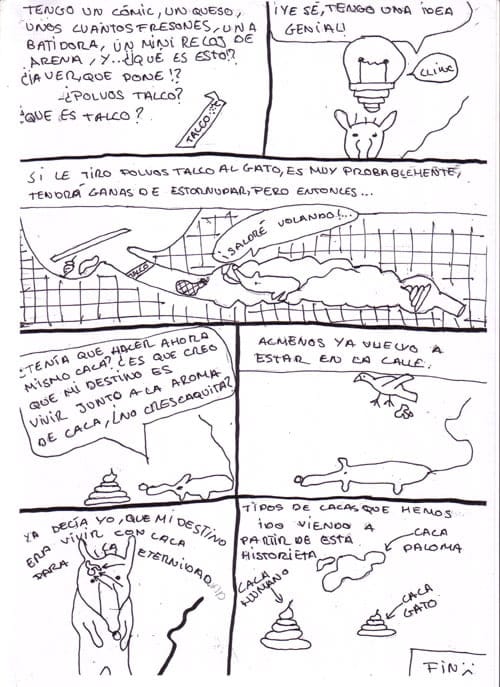 TENGO UN CÓMIC, UN QUESO,
UNOS CUANTOS FRESONES, UNA
BATIDORA, UN MINI RELOJ DE
ARENA, Y...¿¡QUE ES ESTO!?
¿¡A VER, QUE PONE!?
-¿POLVOS TALCO?
¿QUE ES TALCO?
TALCO
¡YE SÉ, TENGO UNA IDEA
GENIAL!
CLINK
SI LE TIRO POLVOS TALCO AL GATO, ES MUY PROBABLEMENTE,
TENDRÁ GANAS DE ESTORNUDAR, PERO ENTONCES...
¡SALDRÉ VOLANDO!...
TALCO
¿TENÍA QUE HACER AHORA
MISMO CACA? ¿ES QUE CREO
QUE MI DESTINO ES
VIVIR JUNTO A LA AROMA
DE CACA, ¿NO CRES CAQUITA?
ALMENOS YA VUELVO A
ESTAR EN LA CALLE.
YA DECÍA YO, QUE MI DESTINO
ERA VIVIR CON CACA
PARA LA ETERNIDAD
TIPOS DE CACAS QUE HEMOS
IDO VIENDO A
PARTIR DE ESTA
HISTORIETA
CACA
PALOMA
CACA
HUMANO
CACA
GATO
FIN